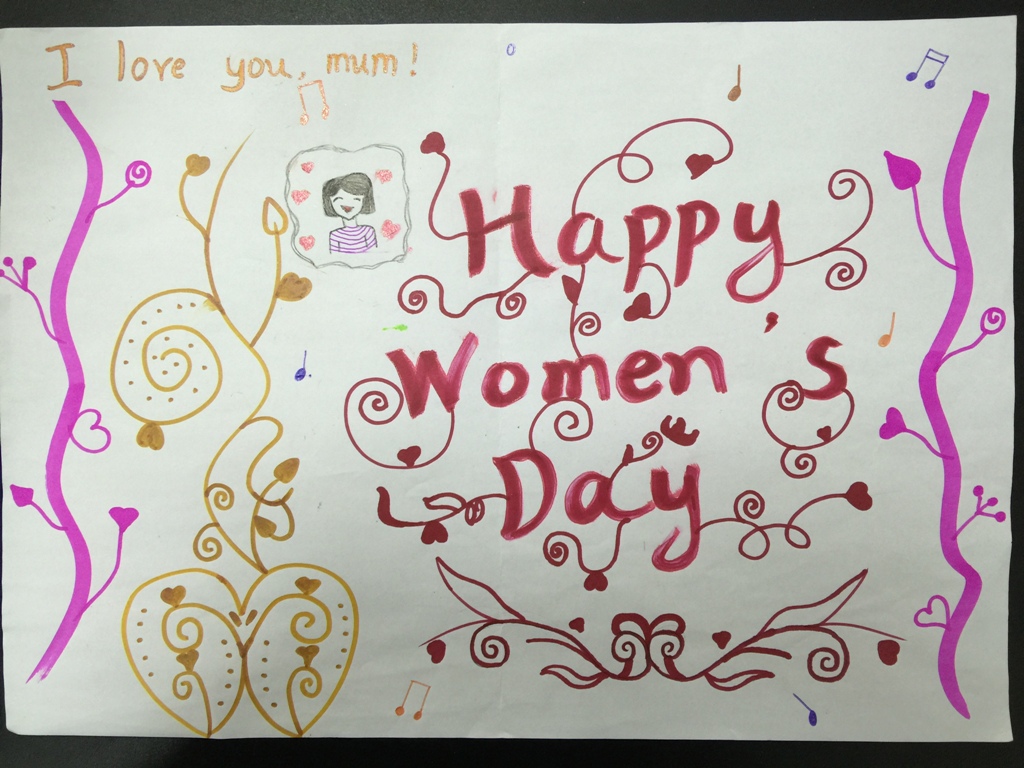 I love you, mum!
Happy
Women's
Day